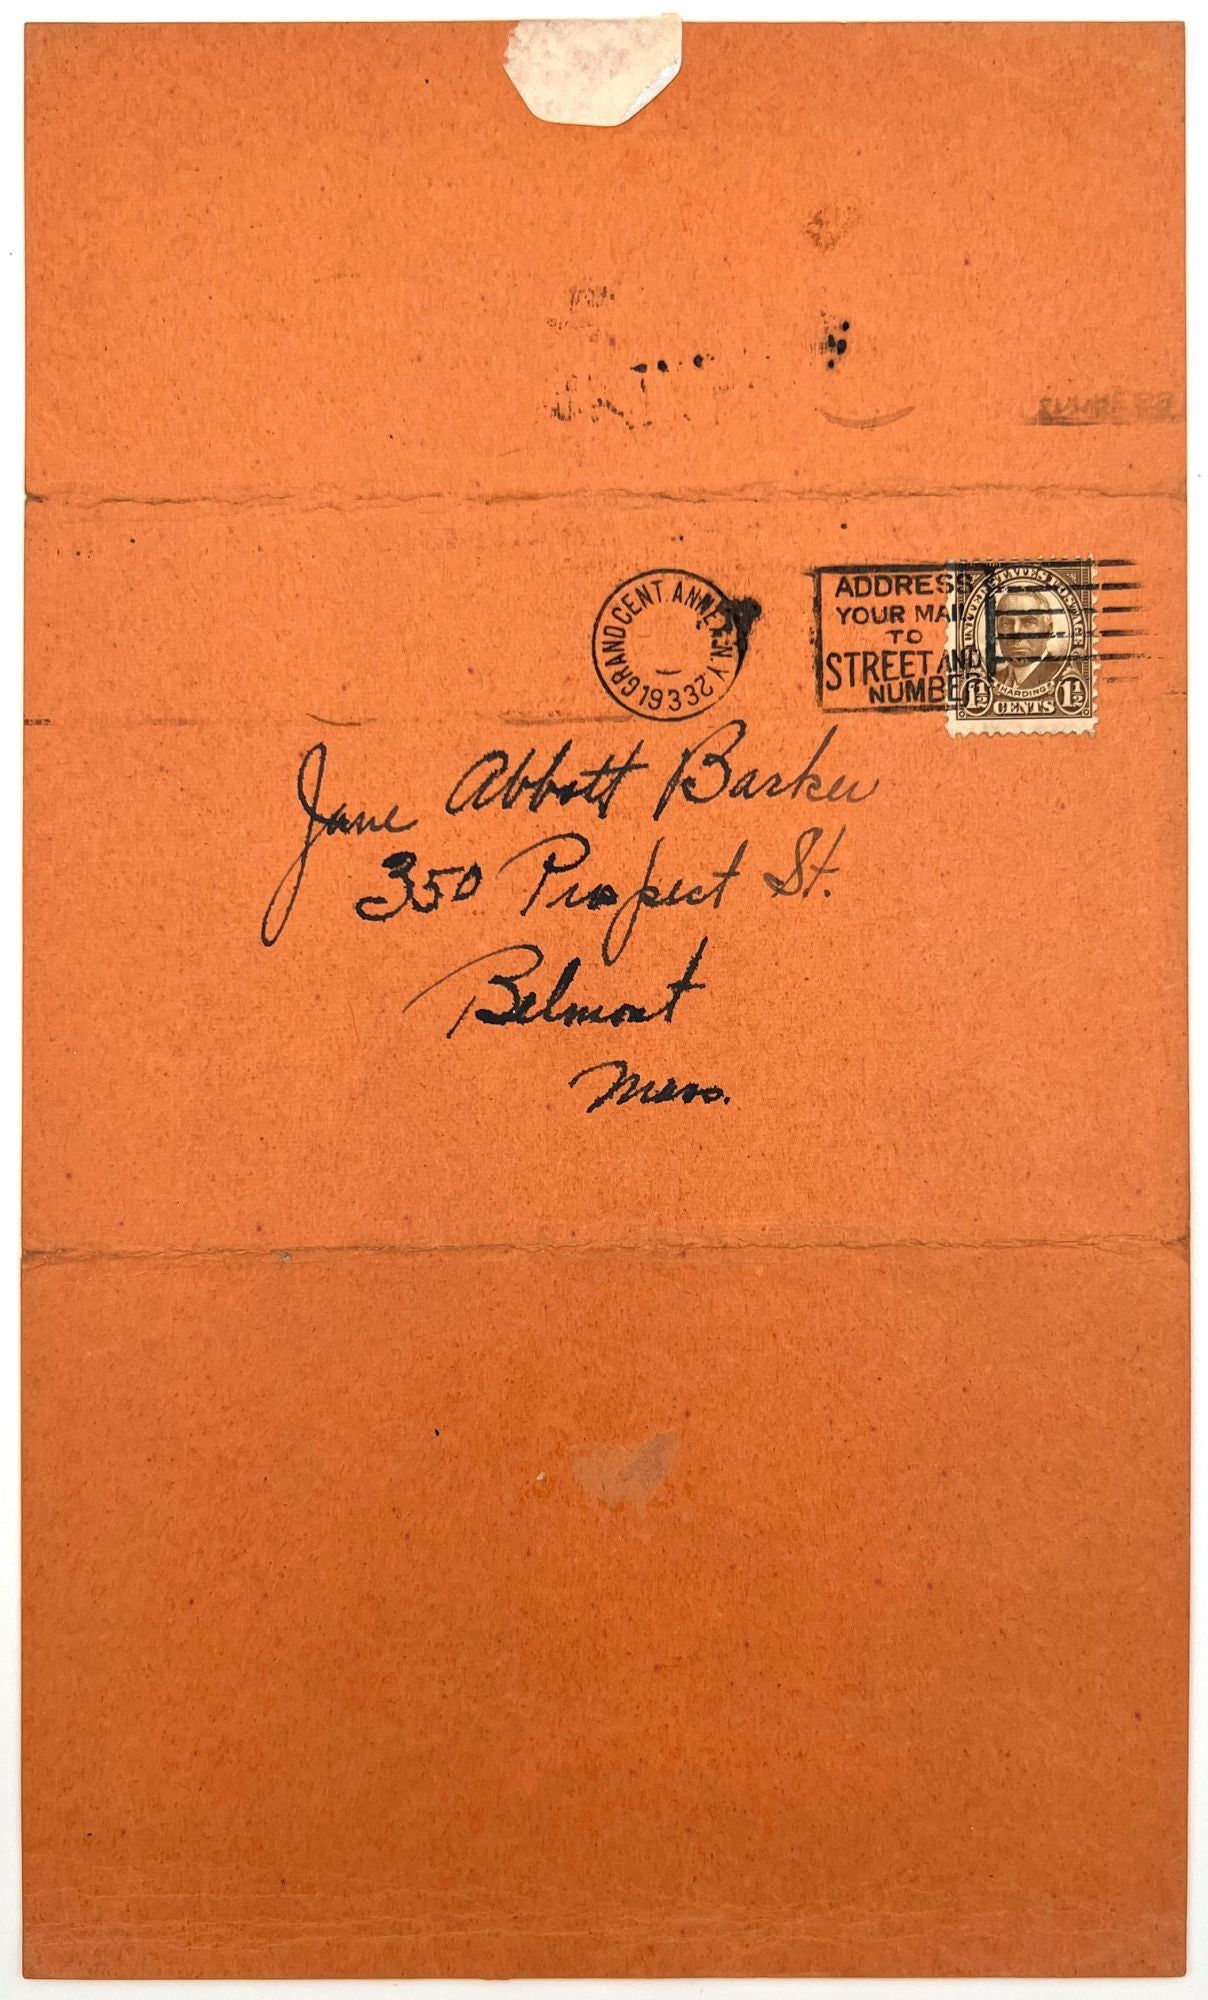 GRAND CENT. ANNEX. N.Y.
1
1933
ADDRESS
YOUR MAIL
TO
STREET AND
NUMBER
UNITED STATES POSTAGE
HARDING
1½ CENTS 1½
Jane Abbott Barker
350 Prospect St.
Belmont
Mass.